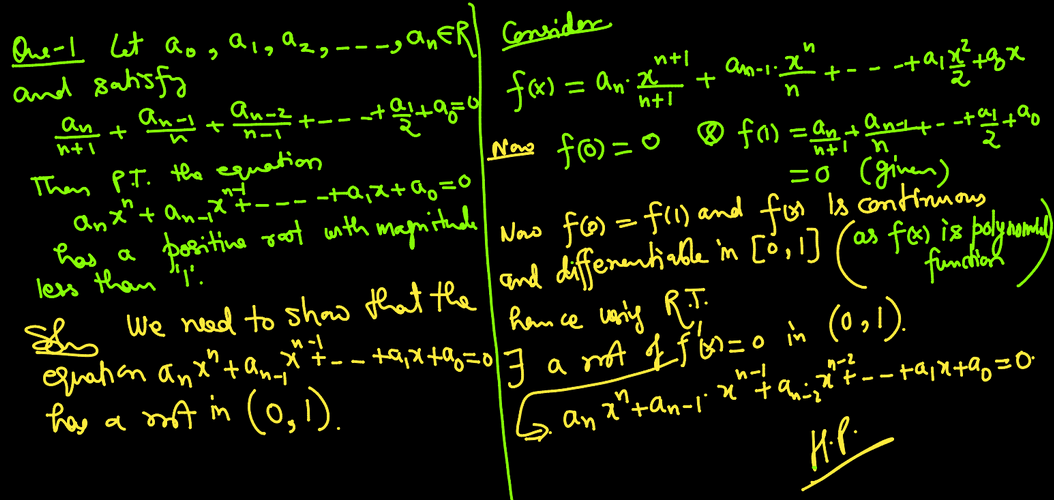 Que-1 Let a₀, a₁, a₂, ----, aₙ∈R
and satisfy
aₙ/(n+1) + aₙ₋₁/n + aₙ₋₂/(n-1) + --- + a₁/2 + a₀ = 0
Then P.T. the equation
aₙxⁿ + aₙ₋₁xⁿ⁻¹ + ---- + a₁x + a₀ = 0
has a positive root with magnitude
less than '1'.
Soln We need to show that the
equation aₙxⁿ + aₙ₋₁xⁿ⁻¹ + -- + a₁x + a₀ = 0
has a root in (0,1).
Consider
f(x) = aₙ·xⁿ⁺¹/(n+1) + aₙ₋₁·xⁿ/n + ---- + a₁x²/2 + a₀x
Now f(0) = 0 & f(1) = aₙ/(n+1) + aₙ₋₁/n + -- + a₁/2 + a₀
= 0 (given)
Now f(0) = f(1) and f(x) is continuous
and differentiable in [0,1] (as f(x) is polynomial function)
hence using R.T.
∃ a root of f'(x) = 0 in (0,1).
⇒ aₙxⁿ + aₙ₋₁·xⁿ⁻¹ + aₙ₋₂xⁿ⁻² + -- + a₁x + a₀ = 0.
H.P.